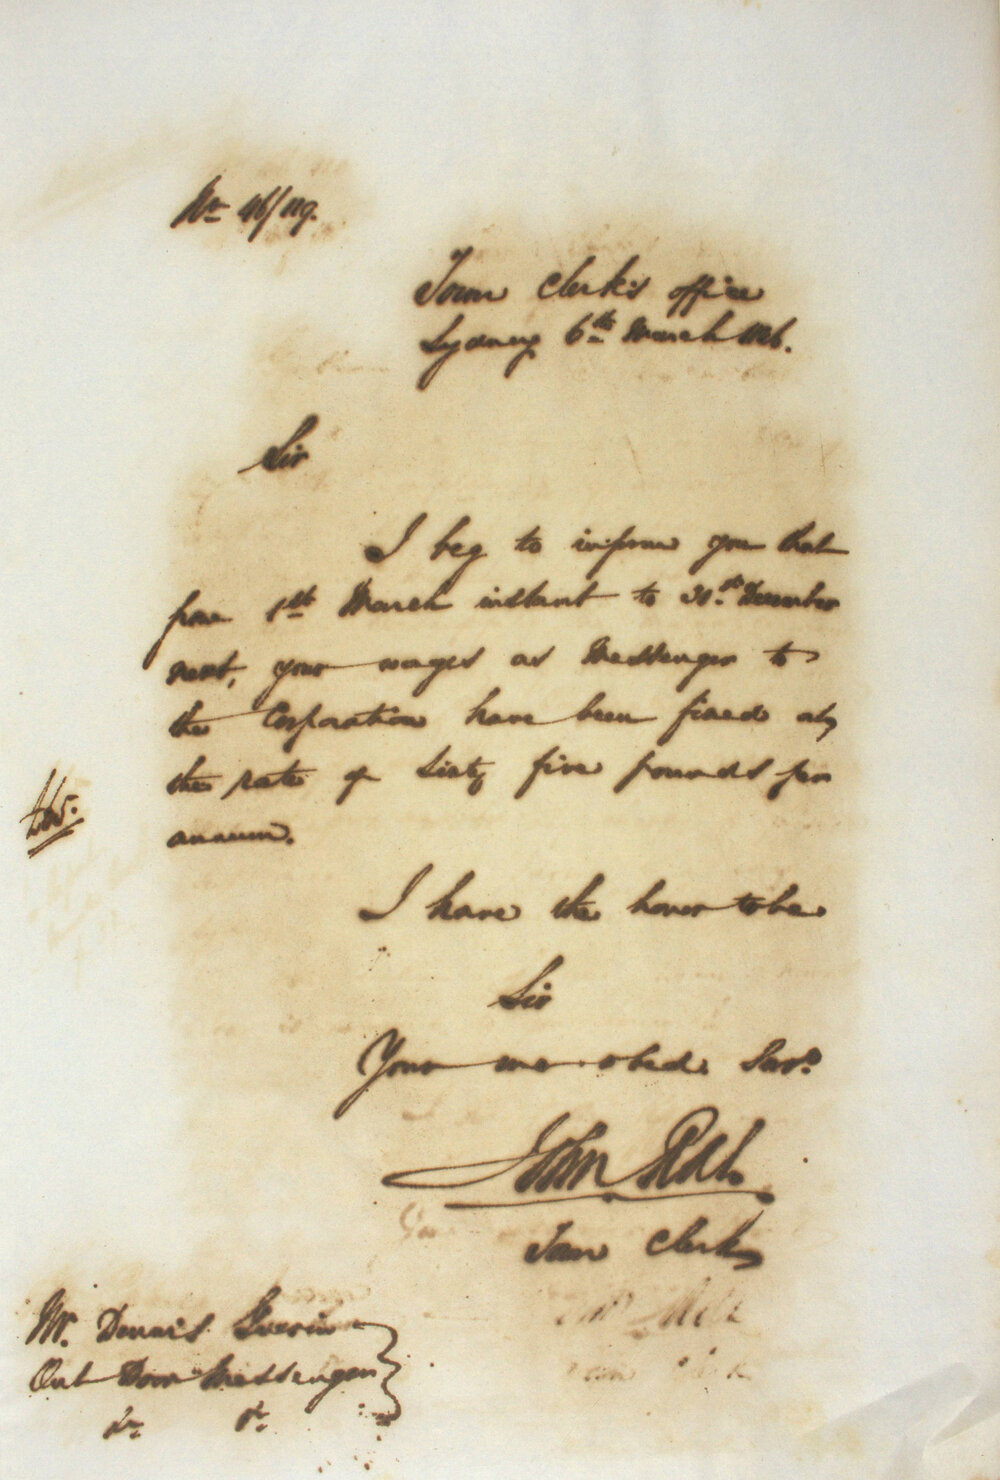 No 46/119.
Town Clerk's office
Sydney 6th March 1846.
Sir
I beg to inform you that
from 1st March instant to 31st December
next, your wages as Messenger to
the Corporation have been fixed at
the rate of Sixty five pounds per
£65.
annum.
I have the honor to be
Sir
Your obed. Serv.
John
Town Clerk
Mr. Dennis
Out Door Messenger